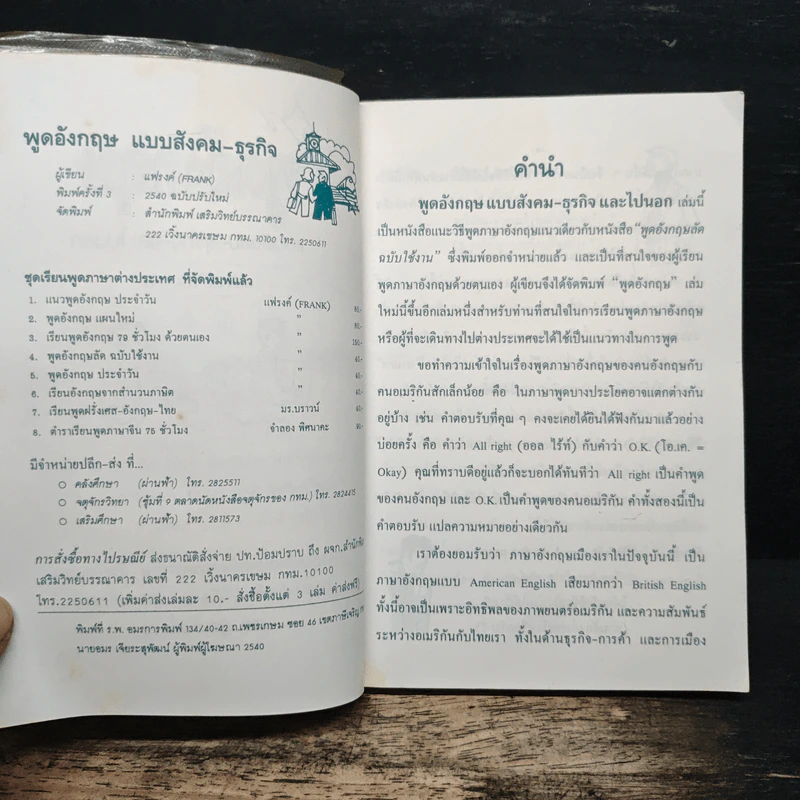 พูดอังกฤษ แบบสังคม-ธุรกิจ
ผู้เขียน : แฟรงค์ (FRANK)
พิมพ์ครั้งที่ 3 : 2540 ฉบับปรับใหม่
จัดพิมพ์ : สำนักพิมพ์ เสริมวิทย์บรรณาคาร
222 เวิ้งนาครเขษม กทม. 10100 โทร. 2250611
ชุดเรียนพูดภาษาต่างประเทศ ที่จัดพิมพ์แล้ว
1. แนวพูดอังกฤษ ประจำวัน แฟรงค์ (FRANK) 80.-
2. พูดอังกฤษ แผนใหม่ " 80.-
3. เรียนพูดอังกฤษ 79 ชั่วโมง ด้วยตนเอง " 150.-
4. พูดอังกฤษลัด ฉบับใช้งาน " 60.-
5. พูดอังกฤษ ประจำวัน "
6. เรียนอังกฤษจากสำนวนภาษิต "
7. เรียนพูดฝรั่งเศส-อังกฤษ-ไทย มร.บราวน์
8. ตำราเรียนพูดภาษาจีน 75 ชั่วโมง จำลอง พิศนาคะ
มีจำหน่ายปลีก-ส่ง ที่...
○ คลังศึกษา (ผ่านฟ้า) โทร. 2825511
○ จตุจักรวิทยา (ซุ้มที่ ๑ ตลาดนัดหนังสือจตุจักรของ กทม.) โทร. 2824415
○ เสริมศึกษา (ผ่านฟ้า) โทร. 2811573
การสั่งซื้อทางไปรษณีย์ ส่งธนาณัติสั่งจ่าย ปท.ป้อมปราบ ถึง ผจก.สำนักพิมพ์
เสริมวิทย์บรรณาคาร เลขที่ 222 เวิ้งนาครเขษม กทม.10100
โทร.2250611 (เพิ่มค่าส่งเล่มละ 10.- สั่งซื้อตั้งแต่ 3 เล่ม ค่าส่งฟรี)
พิมพ์ที่ ร.พ. อมรการพิมพ์ 134/40-42 ถ.เพชรเกษม ซอย 46 เขตภาษีเจริญ
นายอมร เจียระสุพัฒน์ ผู้พิมพ์ผู้โฆษณา 2540
คำนำ
พูดอังกฤษ แบบสังคม-ธุรกิจ และไปนอก เล่มนี้
เป็นหนังสือแนะวิธีพูดภาษาอังกฤษแนวเดียวกับหนังสือ "พูดอังกฤษลัด
ฉบับใช้งาน" ซึ่งพิมพ์ออกจำหน่ายแล้ว และเป็นที่สนใจของผู้เรียน
พูดภาษาอังกฤษด้วยตนเอง ผู้เขียนจึงได้จัดพิมพ์ "พูดอังกฤษ" เล่ม
ใหม่นี้ขึ้นอีกเล่มหนึ่งสำหรับท่านที่สนใจในการเรียนพูดภาษาอังกฤษ
หรือผู้ที่จะเดินทางไปต่างประเทศจะได้ใช้เป็นแนวทางในการพูด
ขอทำความเข้าใจในเรื่องพูดภาษาอังกฤษของคนอังกฤษกับ
คนอเมริกันสักเล็กน้อย คือ ในภาษาพูดบางประโยคอาจแตกต่างกัน
อยู่บ้าง เช่น คำตอบรับที่คุณ ๆ คงจะเคยได้ยินได้ฟังกันมาแล้วอย่าง
บ่อยครั้ง คือ คำว่า All right (ออล ไร้ท์) กับคำว่า O.K. (โอ.เค. =
Okay) คุณที่ทราบดีอยู่แล้วก็จะบอกได้ทันทีว่า All right เป็นคำพูด
ของคนอังกฤษ และ O.K. เป็นคำพูดของคนอเมริกัน คำทั้งสองนี้เป็น
คำตอบรับ แปลความหมายอย่างเดียวกัน
เราต้องยอมรับว่า ภาษาอังกฤษเมืองเราในปัจจุบันนี้ เป็น
ภาษาอังกฤษแบบ American English เสียมากกว่า British English
ทั้งนี้อาจเป็นเพราะอิทธิพลของภาพยนตร์อเมริกัน และความสัมพันธ์
ระหว่างอเมริกันกับไทยเรา ทั้งในด้านธุรกิจ-การค้า และการเมือง